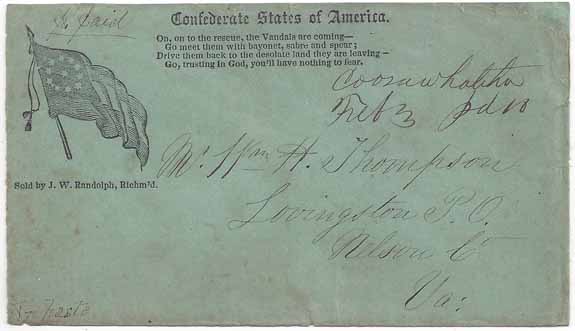 paid
Confederate States of America.
On, on to the rescue, the Vandals are coming—
Go meet them with bayonet, sabre and spear;
Drive them back to the desolate land they are leaving—
Go, trusting in God, you'll have nothing to fear.
Coosawhatchie
Feb 3 Pd 10
Sold by J. W. Randolph, Richm'd.
Mr. Wm H. Thompson
Lovingston P. O.
Nelson Co
Va:
In haste